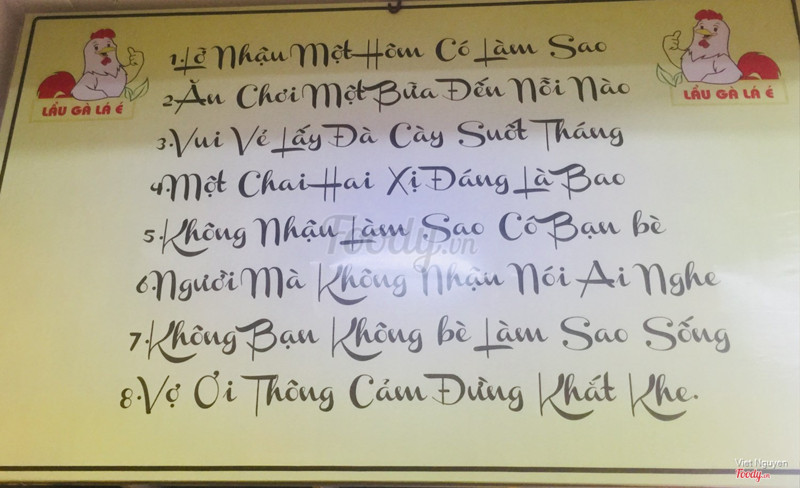 1.Lỡ Nhậu Một Hôm Có Làm Sao
2.Ăn Chơi Một Bữa Đến Nỗi Nào
3.Vui Vẻ Lấy Đà Cày Suốt Tháng
4.Một Chai Hai Xị Đáng Là Bao
5.Không Nhậu Làm Sao Cô Bạn bè
6.Người Mà Không Nhậu Nói Ai Nghe
7.Không Bạn Không bè Làm Sao Sống
8.Vợ Ơi Thông Cảm Đừng Khắt Khe.
LẨU GÀ LÁ É
LẨU GÀ LÁ É
Foody.vn
Viet Nguyen
Foody.vn